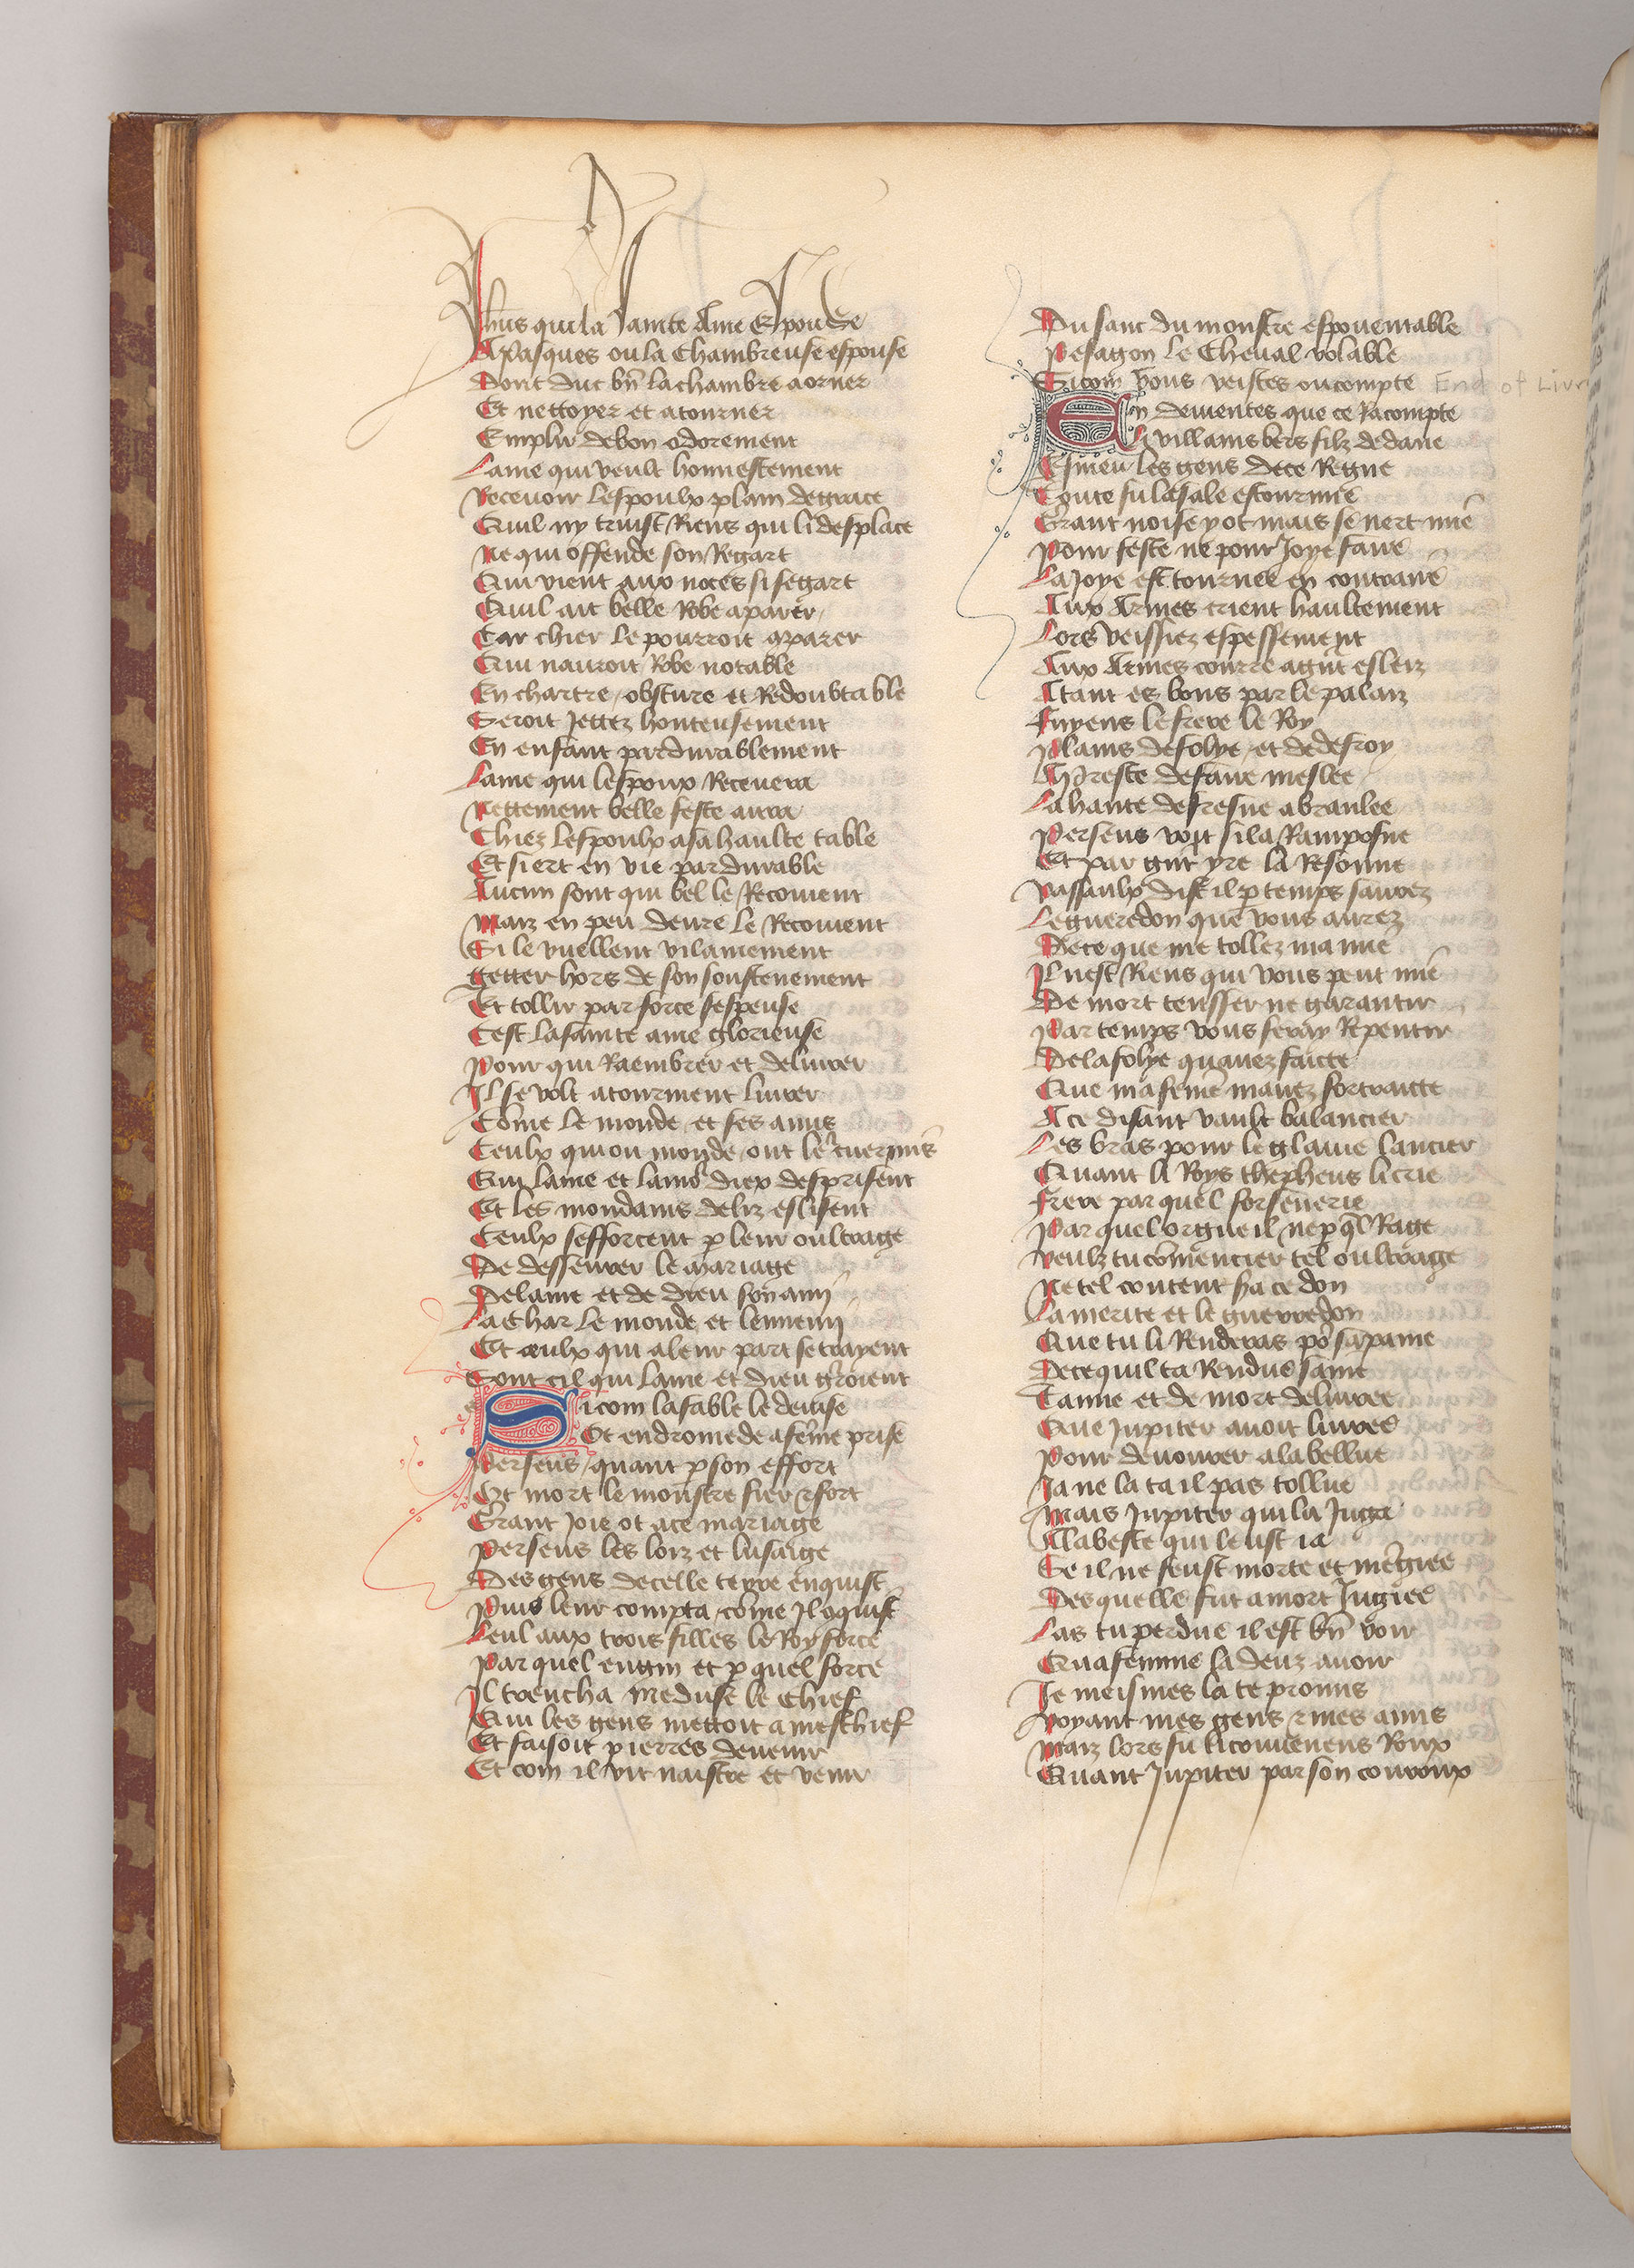 Jhũs qui la Sainte Ame Espouse
A Pasques ou la Chambreuse espouse
Dont duc bñ la chambre aorner
Et nettoyer et atourner
Emplir de bon odorement
Lame qui veult honnestement
Recevoir lespoulx plain de grace
Quil ny truist Riens qui li desplace
Ne qui offende son Regart
Qui vient aux noces si se gart
Quil ait belle Robe a parer
Car chier le pourroit 9parer
Qui nauroit Robe notable
En chartre obscure et Redoubtable
Seroit Jettez honteusement
En enfant pardurablement
Lame qui lespoux Recevera
Nettement belle feste aura
Chiez lespoulx a sa haulte table
Et siert en vie pardurable
Aucun sont qui bel le Recoivent
Maiz en peu deure le Recoivent
Si le vuellent vilainement
Getter hors de son soustenement
Et tollir par force sespeuse
Cest la sainte ame glorieuse
Pour qui Raembrer et delivrer
Il se volt a tourment livrer
Cõme le monde et ses amis
Ceulx qui ou monde ont le cuer mis
Qui lame et lamo᷑ diex desprisent
Et les mondains deliz eslisent
Ceulx sefforcent p leur oultrage
De dessevrer le mariage
De lame et de dieu son amy
La Char le monde et lennemy
Et ceulx qui a leur part se trayent
Sont cil qui lame et dieu g̃roient
Si com la fable le devise
Ot endromede a fẽme prise
Perseus quant p son effort
Ot mort le monstre fier et fort
Grant Joie ot a ce mariage
Perseus les loiz et lusaige
Des gens de celle terre enquist
Puis leur compta cõme Il oquist
Leul aux trois filles le Roy force
Par quel engin et p quel force
Il trencha Meduse le Chief
Qui les gens mettoit a meschief
Et faisoit pierres devenir
Et com il vit naistre et venir
Du sanc du monstre espoventable
Pesagon le Cheval volable
Si com vous veistes ou compte End of Livr
En dementes que ce Racompte
Li villains bers filz de dane
Esmeu les gens de ce Regne
Toute fu la sale estourmie
Grant noise y ot mais se nert mie
Pour feste ne pour Joye faire
La Joye est tournee en contraire
Aux Armes crient haultement
Lors veissiez espessement
Aux Armes courre a grãt esleiz
Atant es vous par le palaiz
Fuyens le frere le Roy
Plains de folye et de defroy
Thireste de faire meslee
La hante de fresne a branlee
Perseus voit si la Ramposne
Et par grãt yre la Resonne
Vassaulx dist il p temps saurez
Le gueredon que vous aurez
De ce que me tollez ma nie
Il nest Riens qui vous peut mie
De mort tensser ne garantir
Par temps vous feray Repentir
De la folye quavez faicte
Que ma fẽme mavez fortraitte
A ce disant vault balancier
Les bras pour le glaive lancier
Quant li Roys thepheus li crie
Frere par quel forsenerie
Par quel orgueil ne p q̃l Rage
Veulz tu cõmencier tel oultrage
Ne tel content ha ce don
La merite et le guerredon
Que tu li Renderas po᷑ sa paine
De ce quil ta Rendue saine
Tanie et de mort delivree
Que Jupiter avoit livree
Pour devourer a la bellue
Ja ne la ta il pas tollue
Mais Jupiter qui la Juga
A la beste qui leust ia
Se il ne feust morte et mẽgiee
Des quelle fut a mort Jugiee
Las tu perdue il est bñ voir
Qua femme la deuz avoir
Je meismes la te promis
Voyant mes gens et mes amis
Maiz lors fu li convenens Roux
Quant Jupiter par son couroux